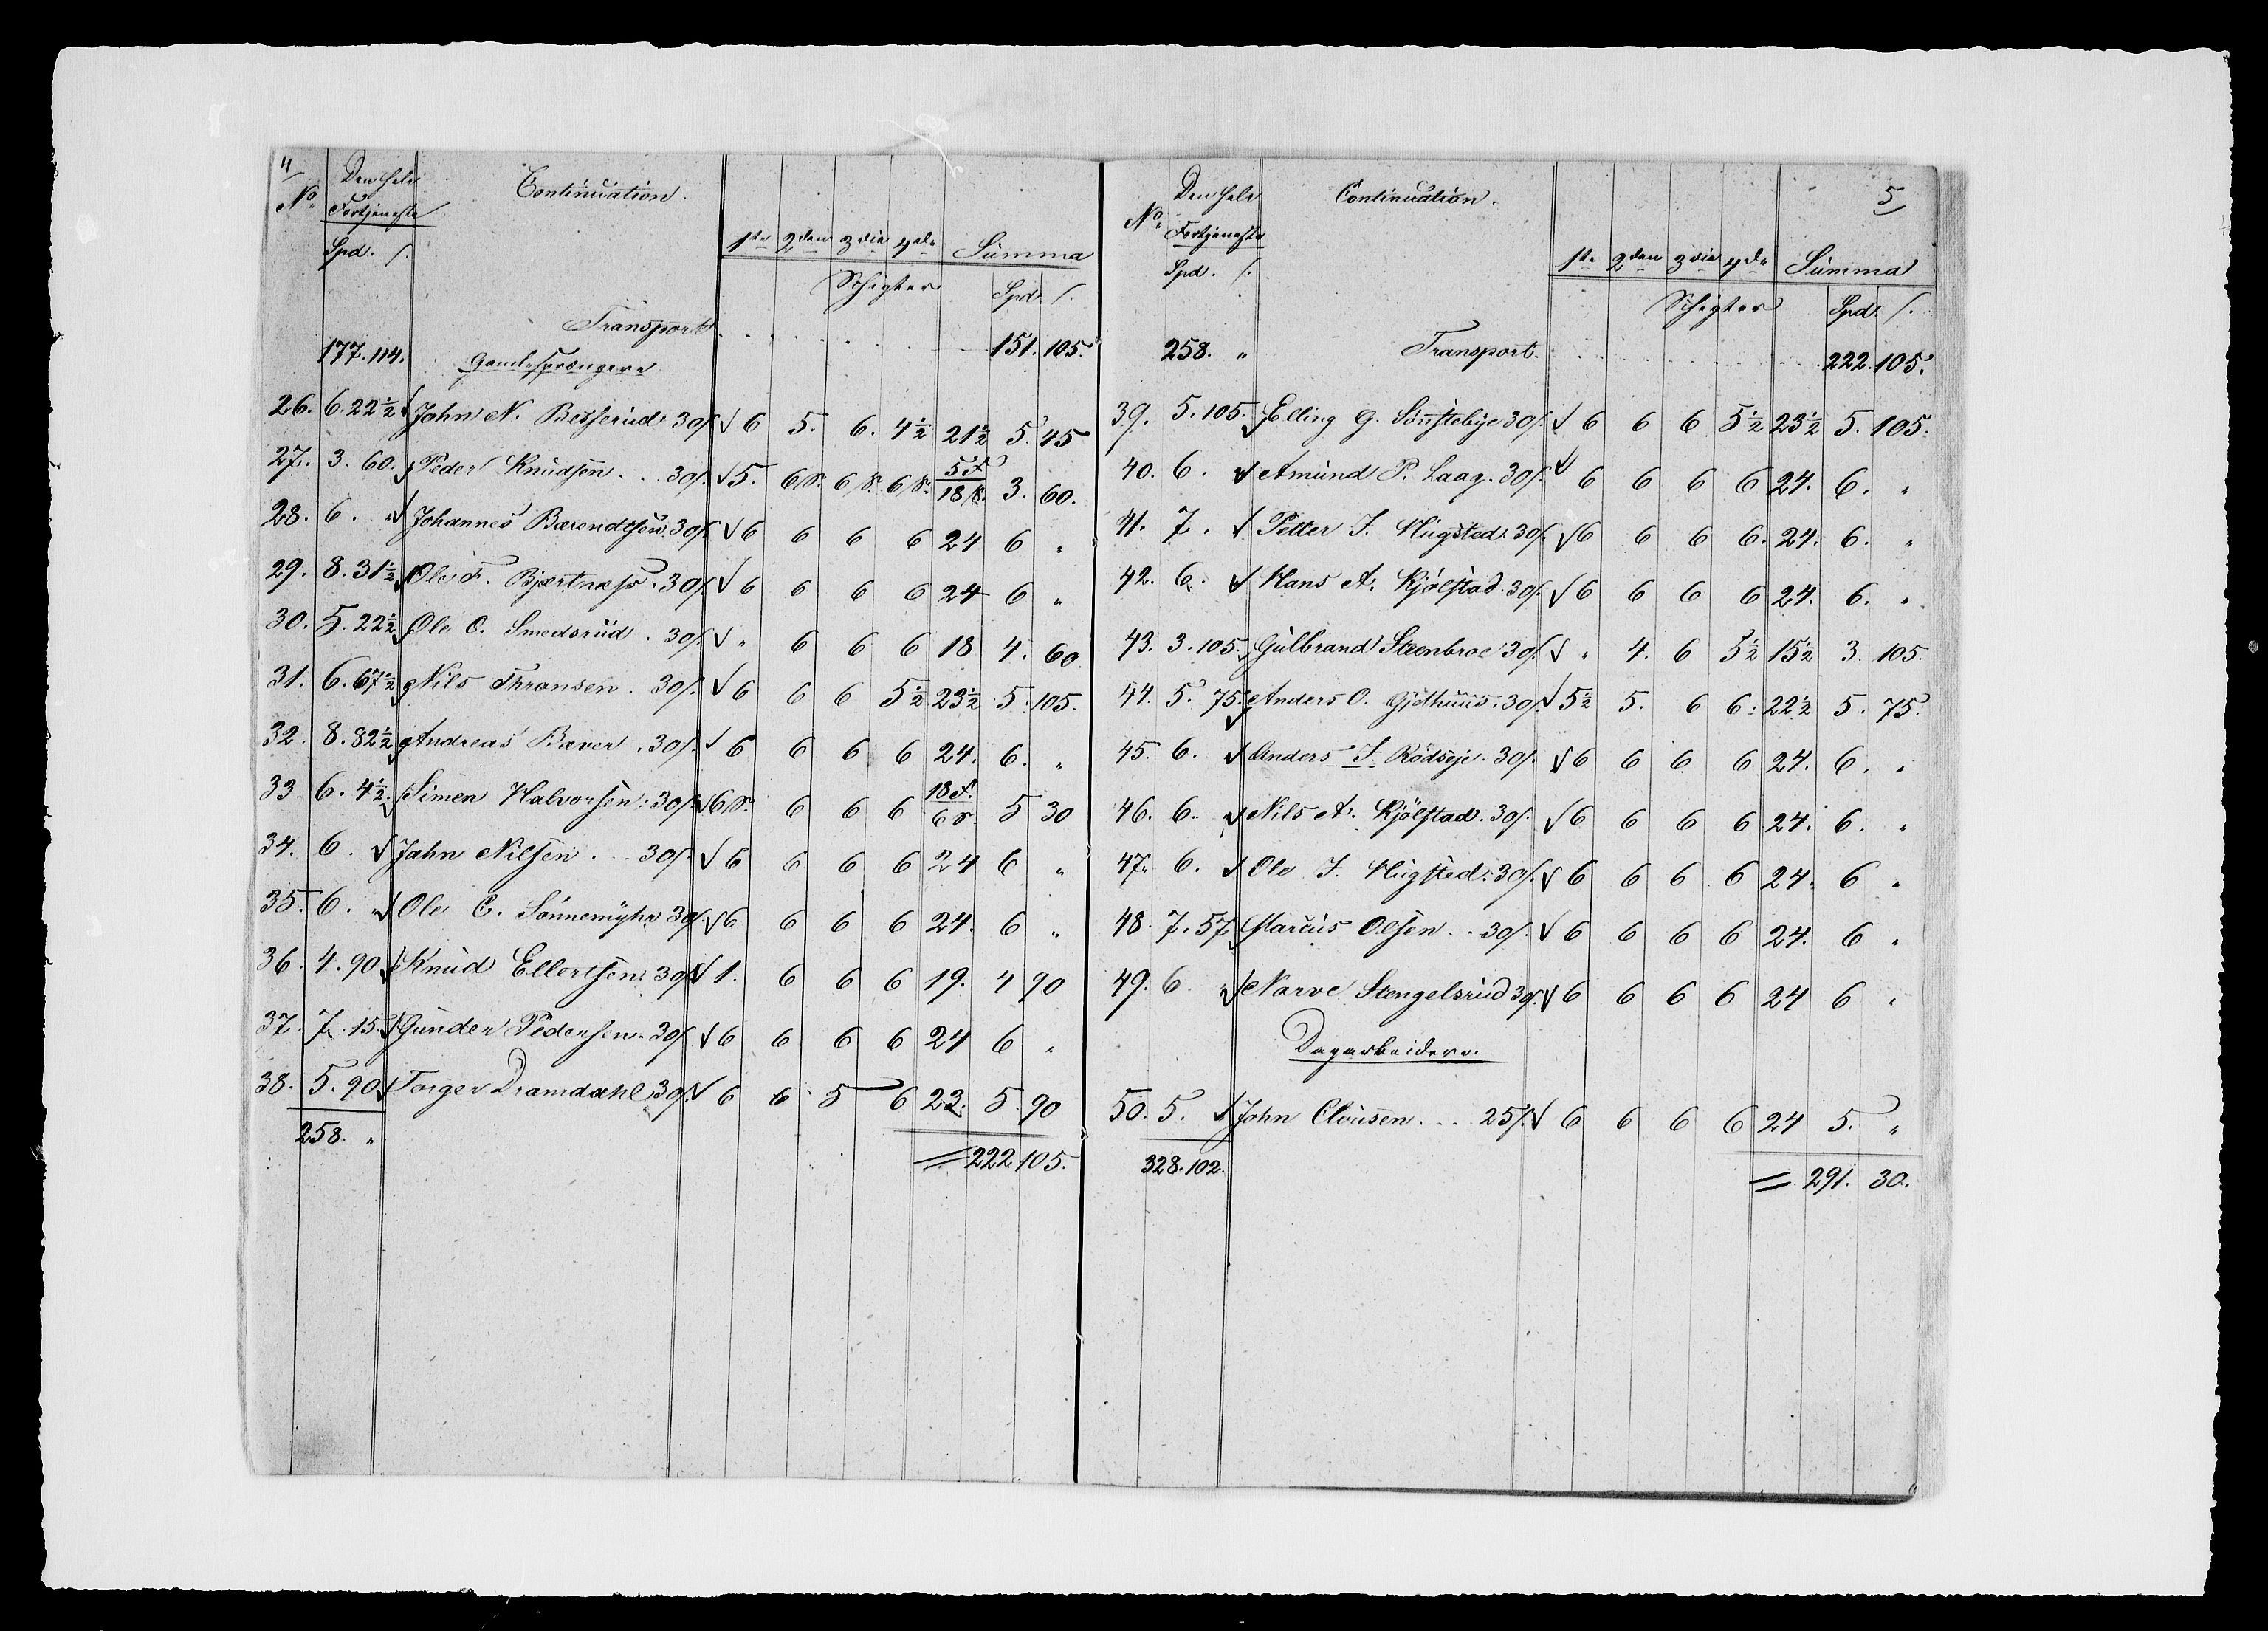 4/
No. Den hele Fortjeneste Continuation.
1ste 2den 3die 4de Summa
Spd. /. Schigter Spd. /.
Transport . . . . . 151. 105.
177. 114. Gamle Sprængere
26. 6. 22½ John N. Besserud 30/. √ 6 5. 6. 4½ 21½ 5. 45
27. 3. 60. Peder Knudsen . . 30/. √ 5. 6 S. 6 S. 6 S. 5 A 18 S. 3. 60.
28. 6. " √ Johannes Barendtsen 30/. √ 6 6 6 6 24 6 "
29. 8. 31½ Ole F. Bjertnæss . 30/. √ 6 6 6 6 24 6 "
30. 5. 22½ Ole O. Smedsrud . 30/. √ " 6 6 6 18 4. 60.
31. 6. 67½ Nils Thransen . 30/. √ 6 6 6 5½ 23½ 5. 105.
32. 8. 82½ Andreas Baver . 30/. √ 6 6 6 6 24. 6. "
33. 6. 4½ Simen Halvorsen . 30/. √ 6 S. 6 6 6 18 A. 6 S. 5 30
34. 6. √ John Nilsen . . . 30/. √ 6 6 6 6 24 6 "
35. 6. " √ Ole C. Sønnemyhr 30/. √ 6 6 6 6 24. 6 "
36. 4. 90 Knud Ellertsen . 30/. √ 1. 6 6 6 19. 4 90
37. 7. 15. Gunder Pedersen . 30/. √ 6 6 6 6 24 6 "
38. 5. 90 Torger Dramdahl 30/. √ 6 6 5 6 23. 5. 90
258. " = 222. 105.
5/
No. Den hele Fortjeneste Continuation.
1ste 2den 3die 4de Summa
Spd. /. Schigter Spd. /.
258. " Transport. . . . . . 222. 105.
39. 5. 105. Elling G. Sønstebye 30/. √ 6 6 6 5½ 23½ 5. 105.
40. 6. √ Amund P. Laag . 30/. √ 6 6 6 6 24. 6. "
41. 7. √ Petter J. Hugsted . 30/. √ 6 6 6 6. 24. 6. "
42. 6. √ Hans A. Kjølstad . 30/. √ 6 6 6 6 24. 6. "
43. 3. 105. Gulbrand Steenbroe 30/. √ " 4. 6 5½ 15½ 3. 105.
44. 5. 75. Anders O. Gjethuus . 30/. √ 5½ 5. 6 6. 22½ 5. 75.
45. 6. √ Anders J. Rödseje . 30/. √ 6 6 6 6 24. 6. "
46. 6. " √ Nils A. Kjölstad . 30/. √ 6 6 6 6 24. 6. "
47. 6. √ Ole J. Hugsted . 30/. √ 6 6 6 6 24. 6 "
48. 7. 57 Marcus Olsen . . 30/. √ 6 6 6 6 24. 6 "
49. 6 " √ Narve Stengelsrud 30/. √ 6 6 6 6 24 6 "
Dagarbeidere.
50. 5. √ John Clousen . . . 25/. √ 6 6 6 6 24 5. "
328. 102. = 291. 30.